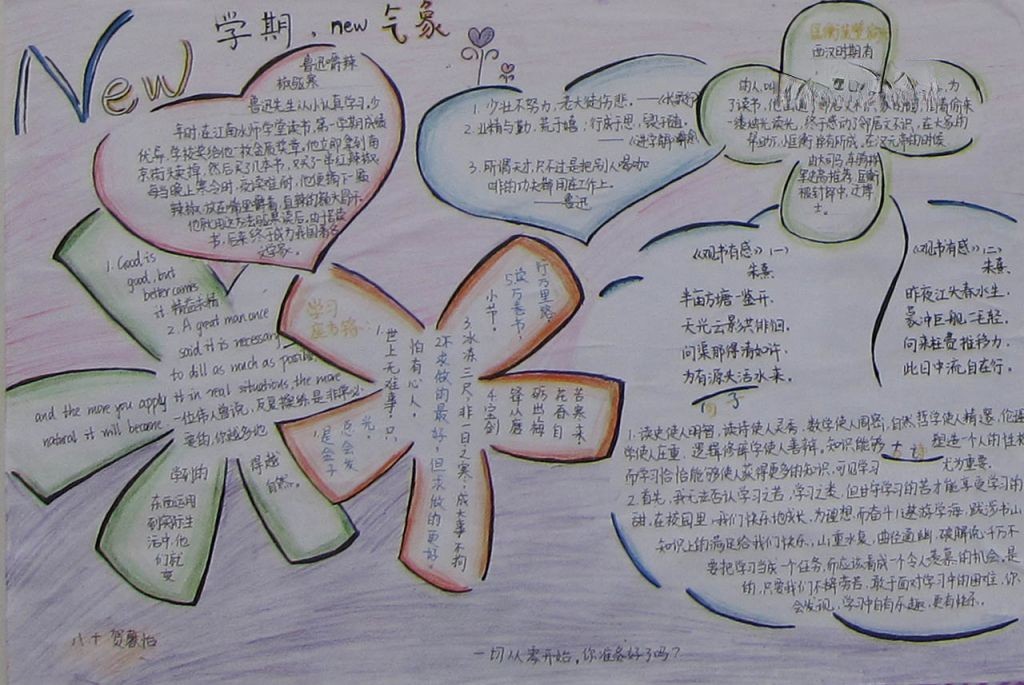 New
学期,new气象
鲁迅嚼辣
椒驱寒
鲁迅先生从小认真学习。少
年时,在江南水师学堂读书,第一学期成绩
优异,学校奖给他一枚金质奖章。他立即拿到南
京街头卖掉,然后买了几本书,又买了一串红辣椒。
每当晚上寒冷时,夜读难耐,他便摘下一颗
辣椒,放在嘴里嚼着,直辣的额头冒汗。
他就用这种办法驱寒读书。由于苦读
书,后来终于成为我国著名
文学家。
1.少壮不努力,老大徒伤悲。
2.业精与勤,荒于嬉;行成于思,毁于随。
3.所谓天才,只不过是把别人喝咖
啡的功夫都用在工作上。
——鲁迅
西汉时期有
了读书,
一缕烛光读光,终于感动了邻居文不识,在大家的
帮助下,小匡衡学有所成。在汉元帝的时候
由大司马
推荐,匡衡
被封郎中,迁博
士。
《观书有感》(一)
朱熹
半亩方塘一鉴开,
天光云影共徘徊。
问渠那得清如许,
为有源头活水来。
《观书有感》(二)
朱熹
昨夜江头春水生,
蒙冲巨舰一毛轻。
向来枉费推移力,
此日中流自在行。
1. Good is
good, but
better carries
it 精益求精
2. A great man once
said it is necessary
to dill as much as possible,
and the more you apply
it in real situations, the more
natural it will become
一位伟人曾说,反复操练是非常必
要的,你越多地
学到的
东西运用
到实际生
活中,他
们就变
得越
自然。
学习
座右铭:
1.世上无难事,只
怕有心人。
2.不求做的最好,但求做的更好。
3.冰冻三尺,非一日之寒;成大事不拘
小节。
4.宝剑
锋从磨
砺出,梅
花香自
苦寒来
5.读万卷书,
行万里路
是金子
总会发
光。
1.读史使人明智,读诗使人灵秀,数学使人周密,自然哲学使人精邃,伦理
学使人庄重,逻辑修辞学使人善辩。知识能够塑造一个人的性格,
而学习恰恰能够使人获得更多的知识,可见学习尤为重要。
2.首先,我无法否认学习之苦,学习之累,但甘于学习的苦才能享受学习的
甜。在校园里,我们快乐地成长,为理想而奋斗;遨游学海,跋涉书山,
知识上的满足给我们快乐,山重水复,曲径通幽,破解

要把学习当成一个任务,而应该看成一个令人羡慕的机会。是
的,只要我们不解劳苦,敢于面对学习中的困难,你
会发现,学习中自有乐趣,更有快乐。
八十 贺慕怡
一切从零开始,你准备好了吗?